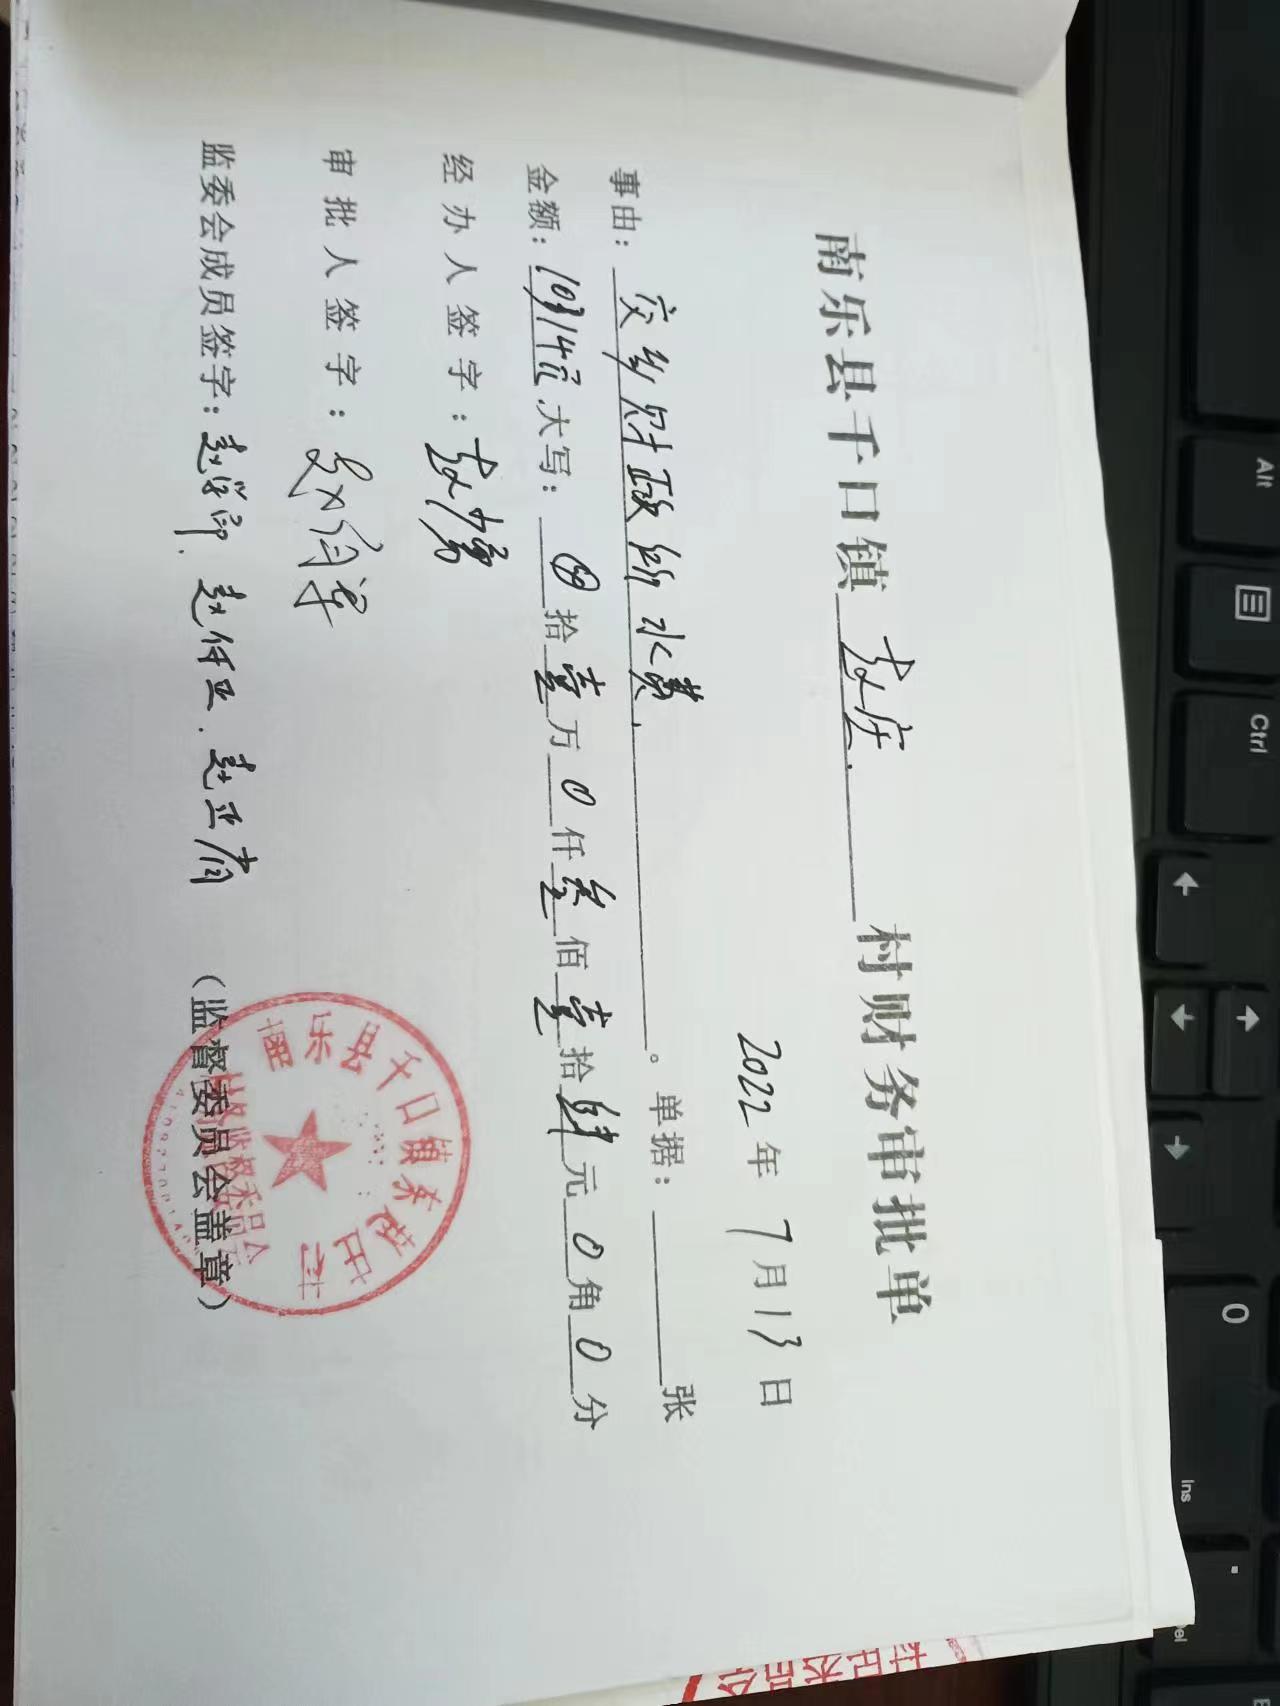 南乐县千口镇 赵庄 村财务审批单
2022年 7月13日
事由: 交乡财政所水费 。单据: 张
金额: 10314元 大写: 0拾壹万0仟叁佰壹拾肆元0角0分
经办人签字:
审批人签字:
监委会成员签字: (监督委员会盖章)
南乐县千口镇东赵庄村
Alt
Ctrl
0
Ins